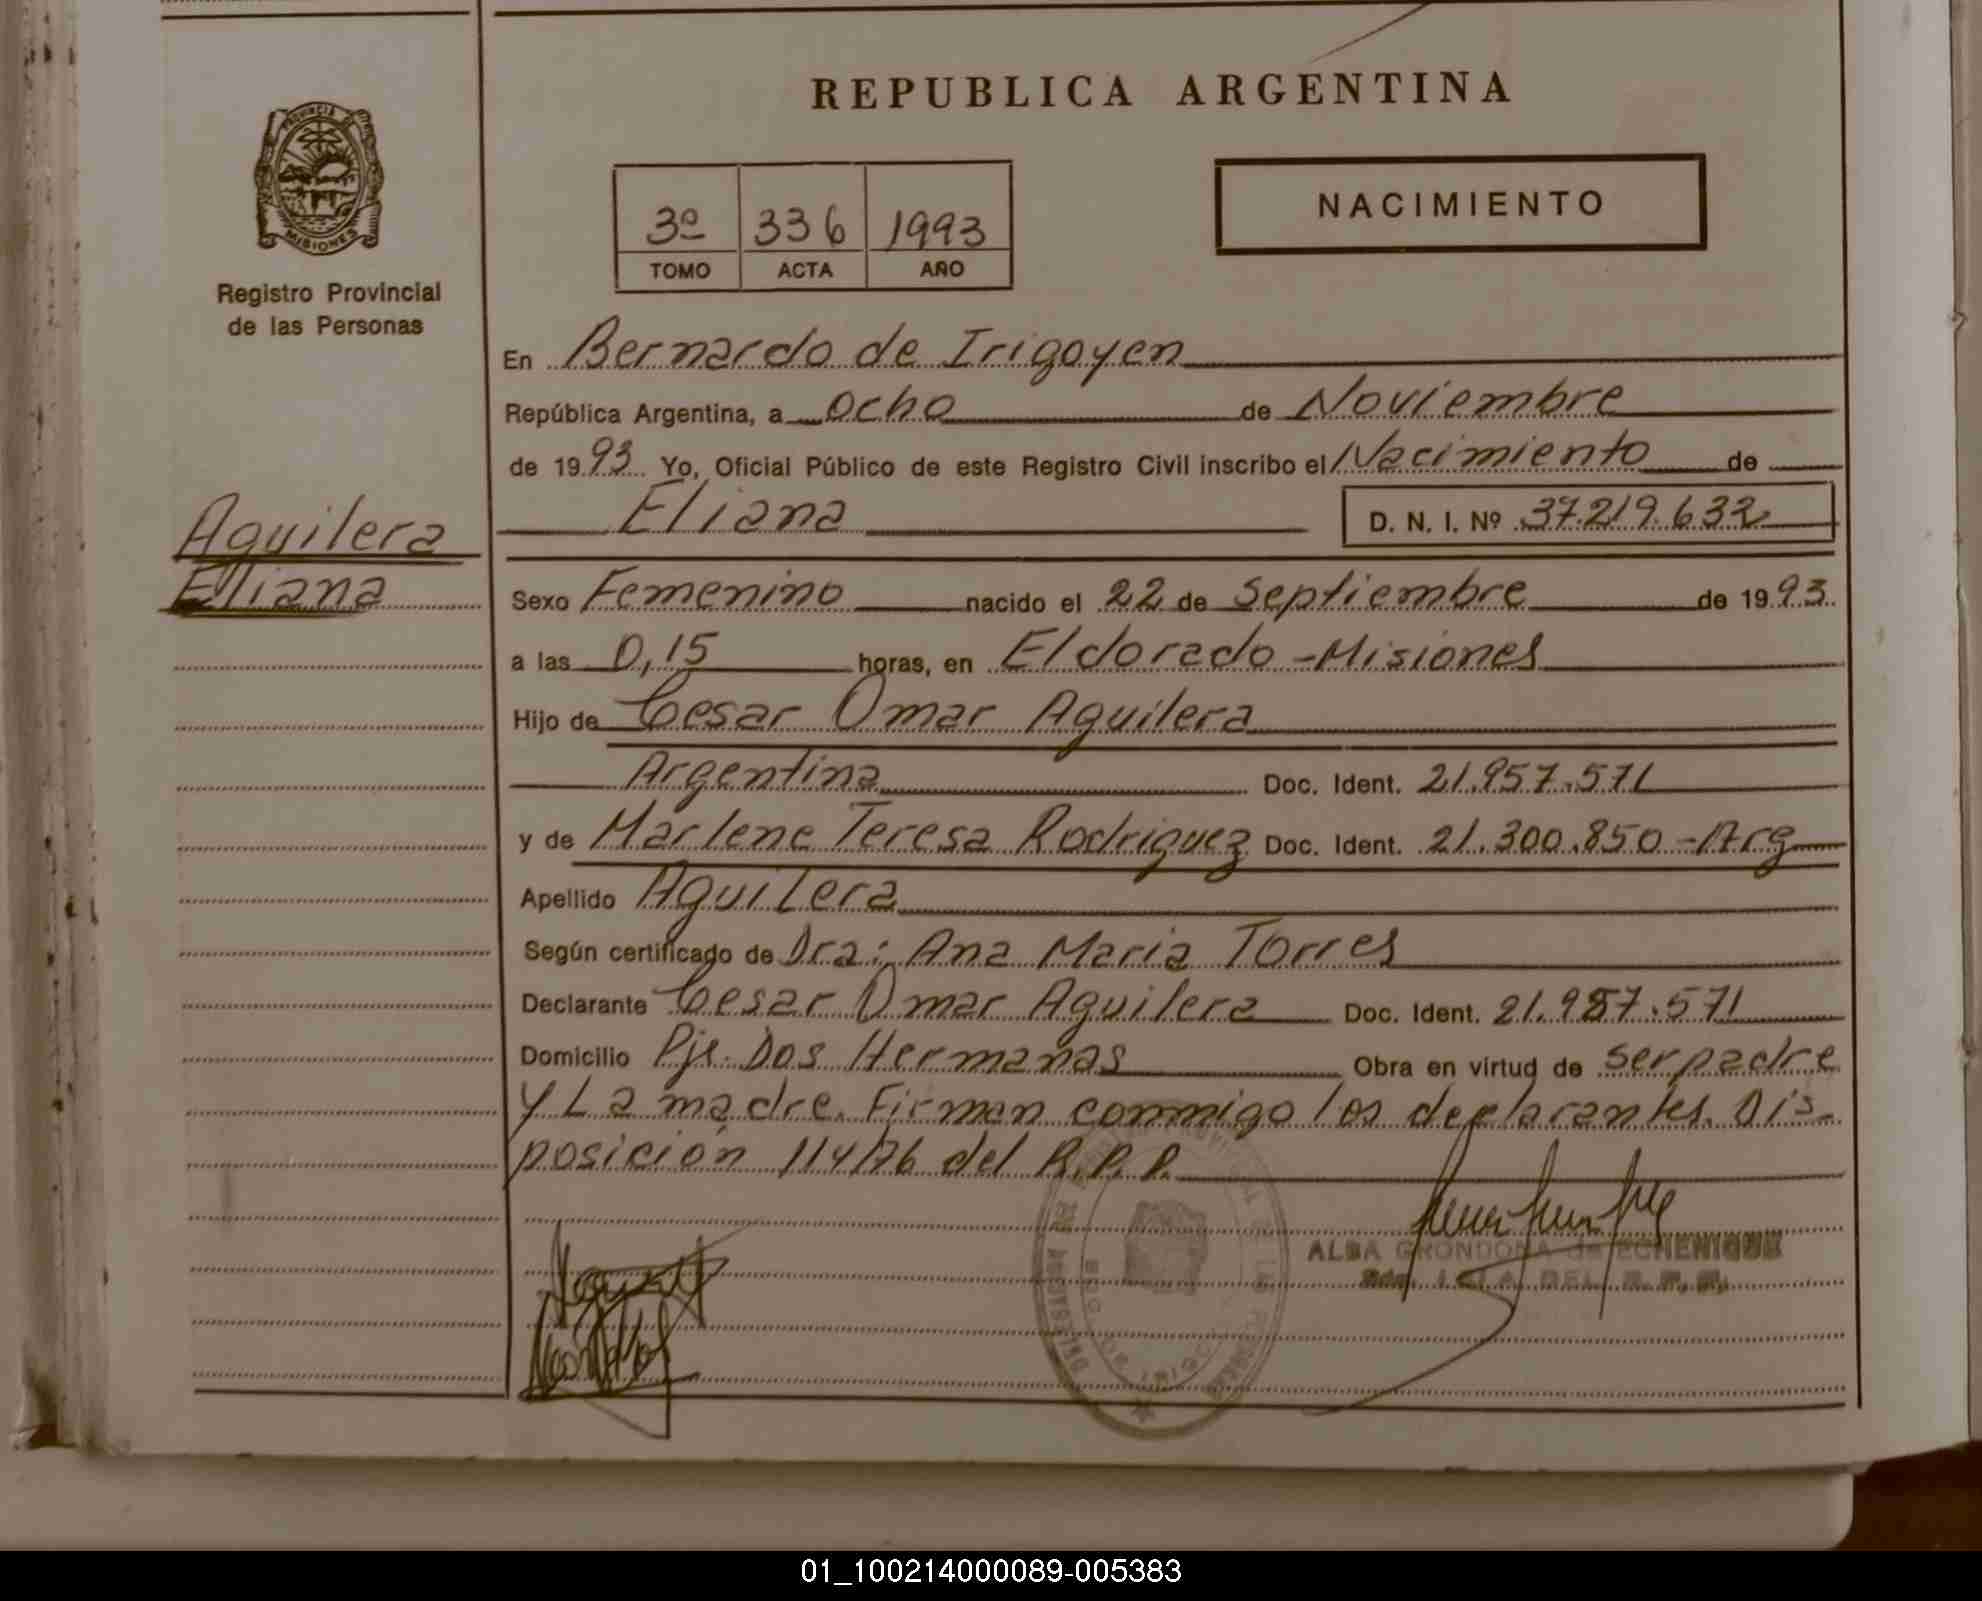 REPUBLICA ARGENTINA
PROVINCIA DE MISIONES
Registro Provincial
de las Personas
3º 336 1993
TOMO ACTA AÑO
NACIMIENTO
En Bernardo de Irigoyen
República Argentina, a ocho de Noviembre
de 1993 Yo, Oficial Público de este Registro Civil inscribo el Nacimiento de
Eliana D. N. I. Nº 37.219.632
Aguilera
Eliana
Sexo Femenino nacido el 22 de Septiembre de 1993
a las 0,15 horas, en Eldorado - Misiones
Hijo de Cesar Omar Aguilera
Argentina Doc. Ident. 21.957.571
y de Marlene Teresa Rodriguez Doc. Ident. 21.300.850 - Arg
Apellido Aguilera
Según certificado de Dra: Ana Maria Torres
Declarante Cesar Omar Aguilera Doc. Ident. 21.957.571
Domicilio Pje. Dos Hermanas Obra en virtud de ser padre
y La madre. Firman conmigo los declarantes. Dis-
posición 114/76 del R.P.P.
ALBA GRONDONA de ECHENIQUE
01_100214000089-005383